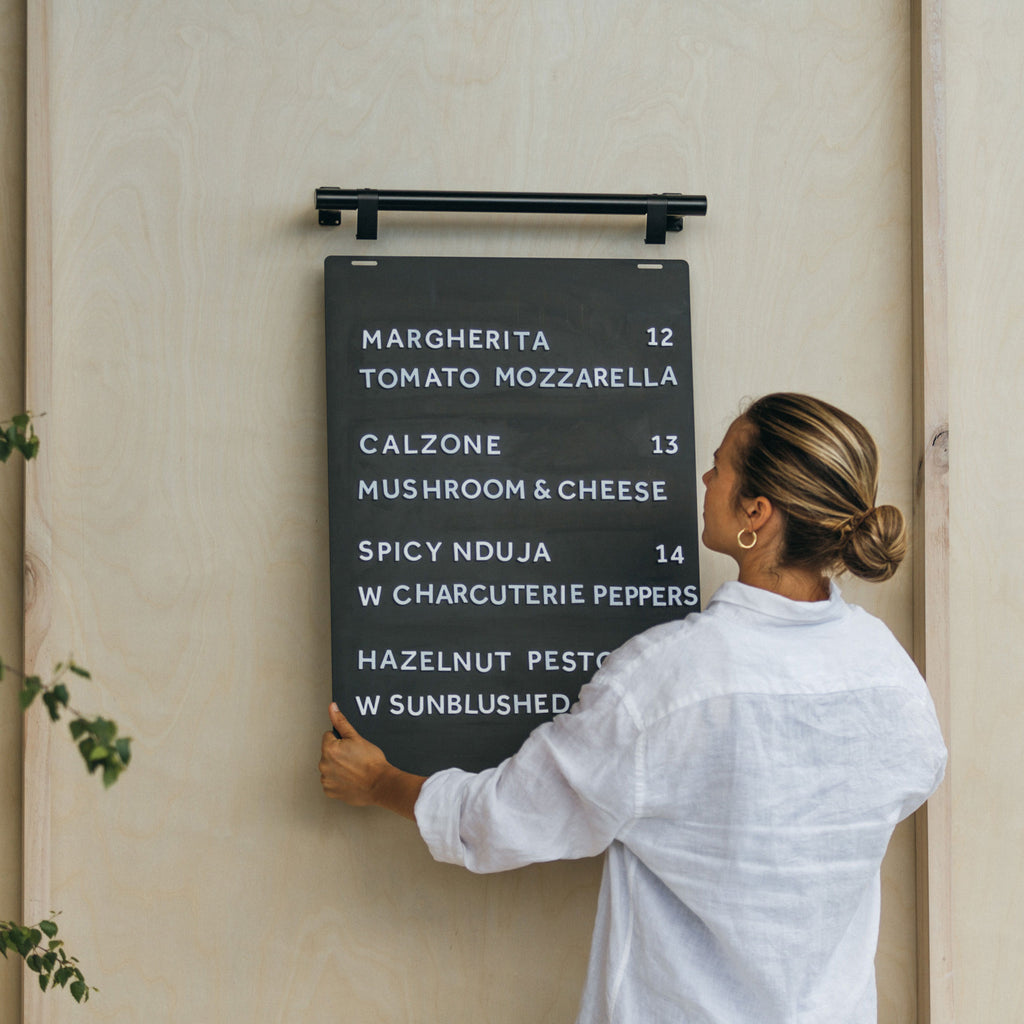 MARGHERITA 12
TOMATO MOZZARELLA
CALZONE 13
MUSHROOM & CHEESE
SPICY NDUJA 14
W CHARCUTERIE PEPPERS
HAZELNUT PESTO
W SUNBLUSHED